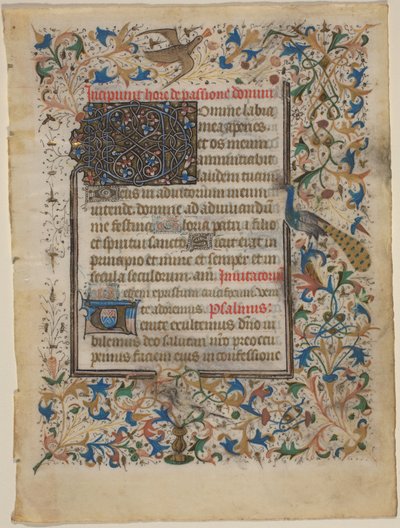 Incipiunt hore de passione domini
Domine labia
mea aperies
et os meum
annuntiabit
laudem tuam
Deus in adiutorium meum
intende. domine ad adiuuandū
me festina Gloria patri et filio
et spiritui sancto Sicut erat in
principio et nunc et semper et in
secula seculorum. am Inuitatoriū
crucifixum veni
te adoremus Psalmus
Uenite exultemus dn̄o iu
bilemus deo salutari nr̄o preoccu
pemus faciem eius in confessione